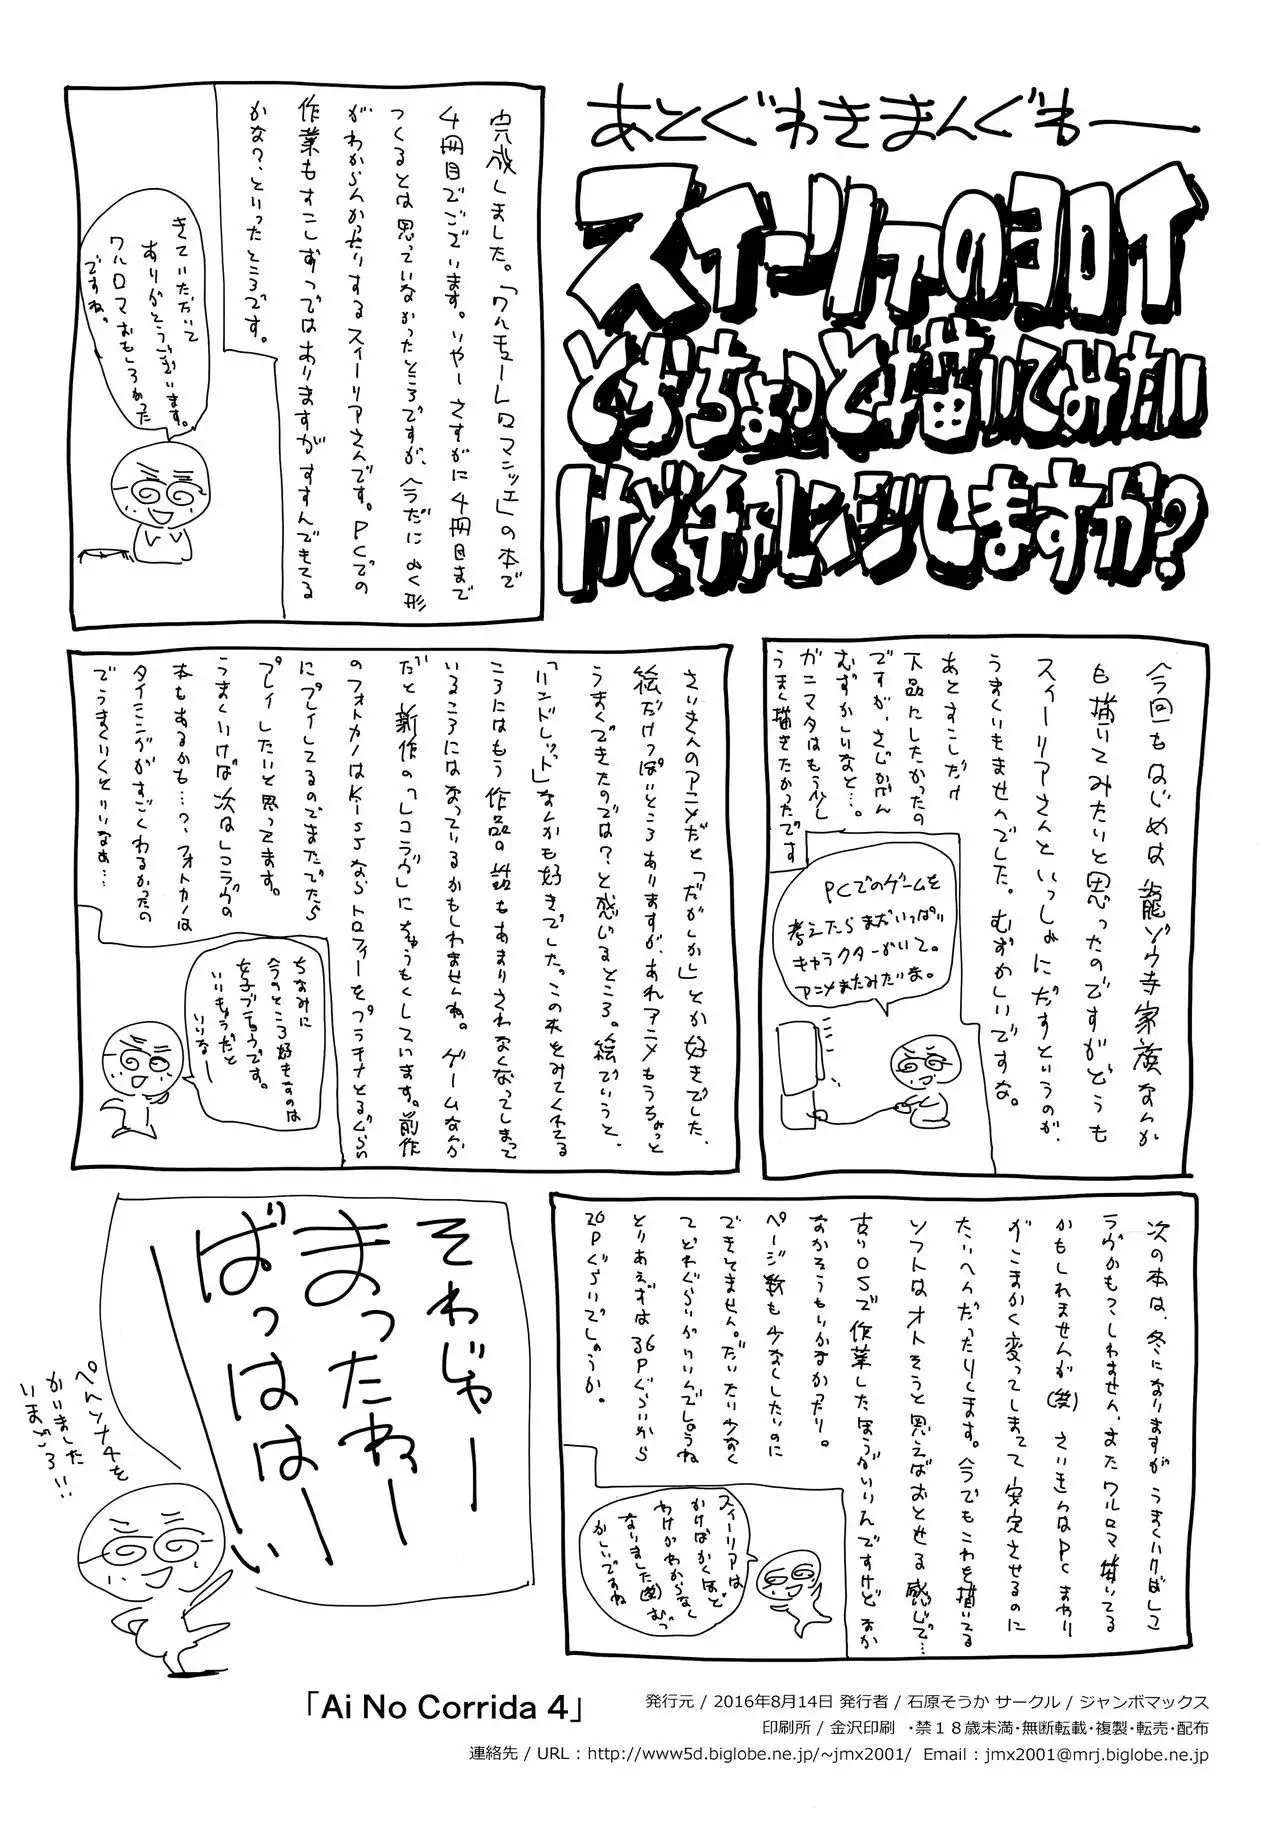 あとぐわきまんぐもー
スイーリアのヨロイ
とかちょっと描いてみたい
けどチャレンジしますか?
完成しました。「ワルキューレロマンツェ」の本で
4冊目でございます。いやーさすがに4冊目まで
つくるとは思っていなかったところですが、今だに ぬく形
がわからんかったりするスイーリアさんです。PCでの
作業もすこしずつではありますがすすんでもてる
かな?、といったところです。
きていただいて
ありがとうございます。
ワルロマおもしろかった
ですね。
今回もはじめは龍ゾウ寺家族なんか
も描いてみたいと思ったのですがどうも
スイーリアさんといっしょにだすというのが、
うまくいきませんでした。むずかしいですな。
あとすこしだけ
下品にしたかったの
ですが、さじかげん
むずかしいなと…。
ガニマタはもう少し
うまく描きたかったです
PCでのゲームを
考えたらまだいっぱい
キャラクターがいて。
アニメまたみたいな。
さいきんのアニメだと「だがしかし」とか好きでした、
絵だけっぽいところありますが、あれアニメもうちょっと
うまくできたのでは?と感じるところ。絵でいうと、
「ハンドレッド」なんかも好きでした。この本をみてくれてる
ころにはもう作品の話もあまりされなくなってしまって
いるころにはなっているかもしれませんね。ゲームなんか
だと新作の「レコラヴ」にちゅうもくしています。前作
のフォトカノはKissならトロフィーをプラチナとるぐらい
にプレイしてるのでまたでたら
プレイしたいと思ってます。
うまくいけば次は「レコラヴ」の
本もあるかも…?、フォトカノは
タイミングがすごくわるかったの
でうまくいくといいなあ…
ちなみに
今のところ好きすのは
女子プロデュウです。
いいキョウだと
いいなー
次の本は、冬になりますが うまくいけばレコ
ラヴかもってしれません、またワルロマ描いてる
かもしれませんが(笑) さいきんはPCまわり
がこまかく変ってしまてて安定させるのに
たいへんだったりします。今でもこれを描いてる
ソフトはオトそうと思えばおとせる感じで…
古いOSで作業したほうがいいんですけどなか
なかそうもいかなかったり。
ページ数も少なくしたいのに
できてません。だいたい少なく
てどれぐらいがいいんでしょうね
とりあえずは36Pぐらいから
20Pぐらいでしょうか。
スイーリアは
かけばかくほど
わけがわからなく
なりました(笑)むっ
かしいですね
それじゃー
まったねー
ばっはは〜い
ペンンナ4を
かいました
いまごろ!!
「Ai No Corrida 4」
発行元 / 2016年8月14日 発行者 / 石原そうか サークル / ジャンボマックス
印刷所 / 金沢印刷 ・禁18歳未満・無断転載・複製・転売・配布
連絡先 / URL : http://www5d.biglobe.ne.jp/~jmx2001/ Email : jmx2001@mrj.biglobe.ne.jp